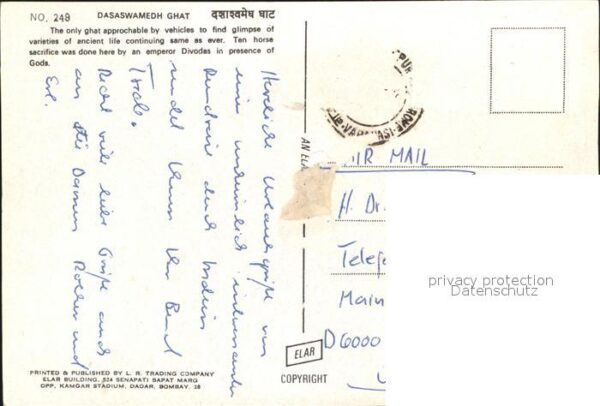 NO. 248 DASASWAMEDH GHAT दशाश्वमेध घाट
The only ghat approchable by vehicles to find glimpse of
varieties of ancient life continuing same as ever. Ten horse
sacrifice was done here by an emperor Divodas in presence of
Gods.
Herzliche Urlaubsgrüße von
einer unheimlich interessanten
Rundreise durch Indien
sendet Ihnen Ihr Bernd
Recht viele liebe Grüße auch
an die Damen und
AIR MAIL
H. Dr.
Telef
Main
D 6000
AN ELAR
ELAR
COPYRIGHT
PRINTED & PUBLISHED BY L. R. TRADING COMPANY
ELAR BUILDING, 524 SENAPATI BAPAT MARG
OPP. KAMGAR STADIUM, DADAR, BOMBAY. 28
privacy protection
Datenschutz